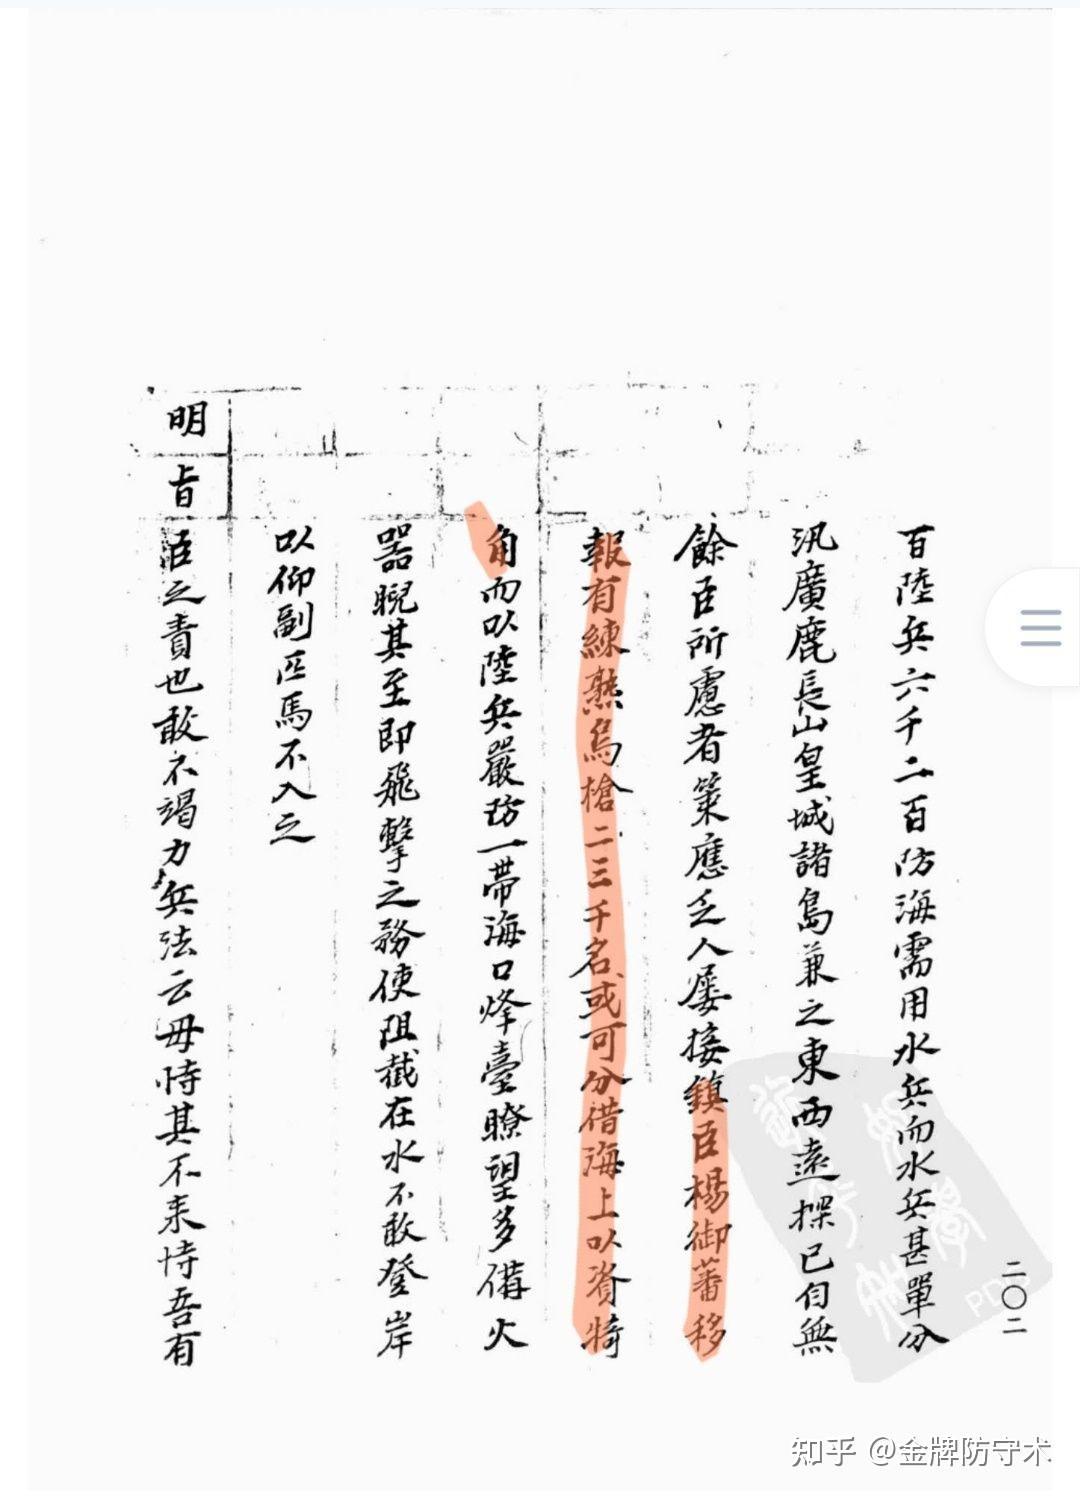 百陸兵六千二百防海需用水兵而水兵甚單分
汛廣鹿長山皇城諸島兼之東西遠探已自無
餘臣所慮者策應乏人屡接鎮臣楊御蕃移
報有練熟鳥槍二三千名或可分借海上以資犄
角而以陸兵嚴防一帶海口烽臺瞭望多備火
器睨其至即飛擊之務使阻截在水不敢登岸
以仰副匹馬不入之
明旨臣之責也敢不竭力兵法云毋恃其不来恃吾有
二〇二
PDG
知乎 @金牌防守术